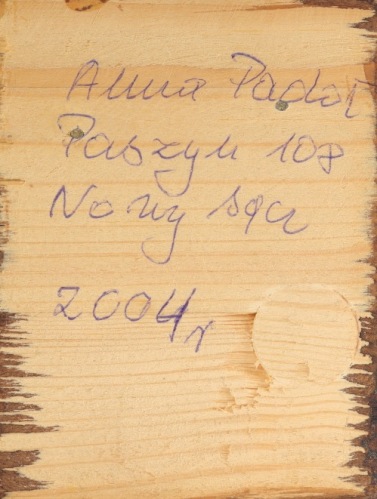 Anna Padoł
Paszyn 108
Nowy Sącz
2004r